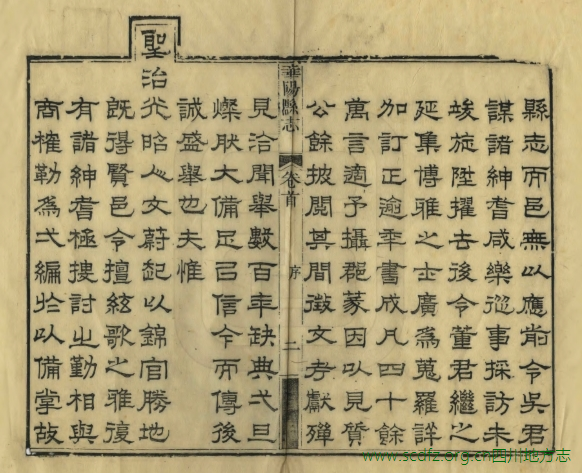 縣志而邑無以應前令吳君
謀諸紳耆咸樂從事採訪未
竣旋陞擢去後令董君繼之
延集博雅之士廣為蒐羅詳
加訂正逾年書成凡四十餘
萬言適予攝郡篆因以見質
公餘披閱其間徵文考獻殫
華陽縣志
卷首
序
二
見洽聞舉數百年缺典弌旦
燦然大備足㠯信今而傳後
誠盛舉也夫惟
聖治光昭人文蔚起以錦官勝地
既得賢邑令擅絃歌之雅復
有諸紳耆極搜討之勤相與
商榷勒為弌編於以備掌故
www.scdfz.org.cn四川地方志